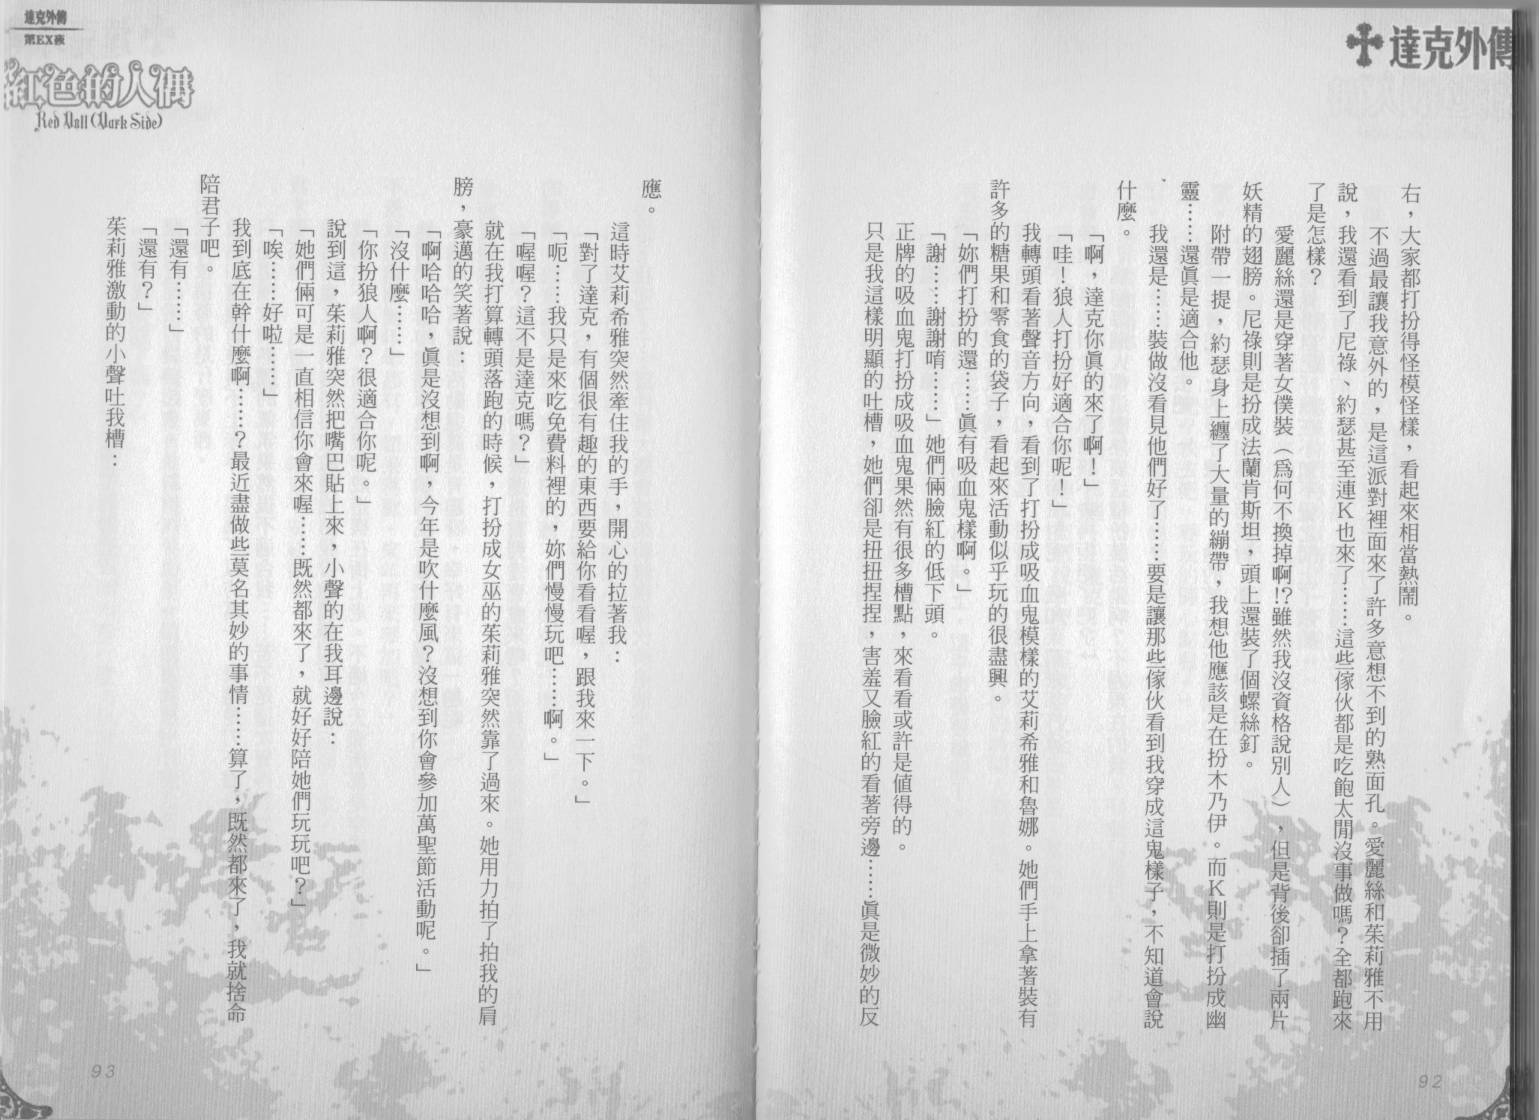 達克外傳
右，大家都打扮得怪模怪樣，看起來相當熱鬧。
不過最讓我意外的，是這派對裡面來了許多意想不到的熟面孔。愛麗絲和茱莉雅不用
說，我還看到了尼祿、約瑟甚至連K也來了……這些傢伙都是吃飽太閒沒事做嗎？全都跑來
了是怎樣？
愛麗絲還是穿著女僕裝（為何不換掉啊!?雖然我沒資格說別人），但是背後卻插了兩片
妖精的翅膀。尼祿則是扮成法蘭肯斯坦，頭上還裝了個螺絲釘。
附帶一提，約瑟身上纏了大量的繃帶，我想他應該是在扮木乃伊。而K則是打扮成幽
靈……還真是適合他。
我還是……裝做沒看見他們好了……要是讓那些傢伙看到我穿成這鬼樣子，不知道會說
什麼。
「啊，達克你真的來了啊！」
「哇！狼人打扮好適合你呢！」
我轉頭看著聲音方向，看到了打扮成吸血鬼模樣的艾莉希雅和魯娜。她們手上拿著裝有
許多的糖果和零食的袋子，看起來活動似乎玩的很盡興。
「妳們打扮的還……真有吸血鬼樣啊。」
「謝……謝謝唷……」她們倆臉紅的低下頭。
正牌的吸血鬼打扮成吸血鬼果然有很多槽點，來看看或許是值得的。
只是我這樣明顯的吐槽，她們卻是扭扭捏捏，害羞又臉紅的看著旁邊……真是微妙的反
92
達克外傳
第EX夜
紅色的人偶
Red Doll(Dark Side)
應。
這時艾莉希雅突然牽住我的手，開心的拉著我：
「對了達克，有個很有趣的東西要給你看看喔，跟我來一下。」
「呃……我只是來吃免費料裡的，妳們慢慢玩吧……啊。」
「喔喔？這不是達克嗎？」
就在我打算轉頭落跑的時候，打扮成女巫的茱莉雅突然靠了過來。她用力拍了拍我的肩
膀，豪邁的笑著說：
「啊哈哈哈，真是沒想到啊，今年是吹什麼風？沒想到你會參加萬聖節活動呢。」
「沒什麼……」
「你扮狼人啊？很適合你呢。」
說到這，茱莉雅突然把嘴巴貼上來，小聲的在我耳邊說：
「她們倆可是一直相信你會來喔……既然都來了，就好好陪她們玩玩吧？」
「唉……好啦……」
我到底在幹什麼啊……？最近盡做些莫名其妙的事情……算了，既然都來了，我就捨命
陪君子吧。
「還有……」
「還有？」
茱莉雅激動的小聲吐我槽：
93